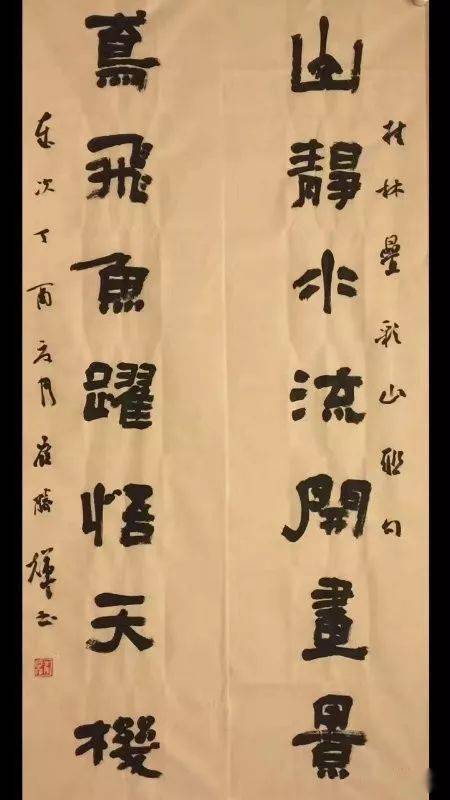 桂林疊彩山聯句
山靜水流開畫景
鳶飛魚躍悟天機
歲次丁酉月勝書